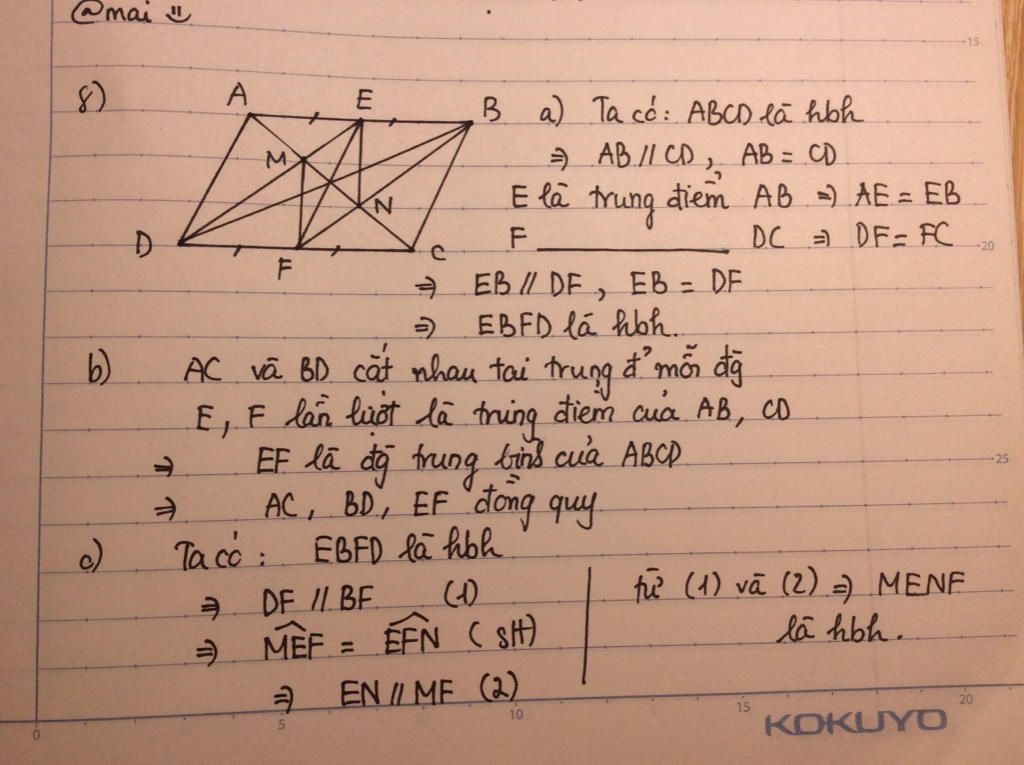 @mai
8)
A E B
M
N
D F C
a) Ta có: ABCD là hbh
⇒ AB // CD, AB = CD
E là trung điểm AB ⇒ AE = EB
F ________ DC ⇒ DF = FC
⇒ EB // DF, EB = DF
⇒ EBFD là hbh.
b) AC và BD cắt nhau tai trung đ' mỗi đg
E, F lần lượt là trung điểm của AB, CD
⇒ EF là đg trung bình của ABCD
⇒ AC, BD, EF đồng quy
c) Ta có: EBFD là hbh
⇒ DF // BF (1)
⇒ MEF = EFN (slt)
⇒ EN // MF (2)
từ (1) và (2) ⇒ MENF
là hbh.
15
20
25
0 5 10 15 20
KOKUYO